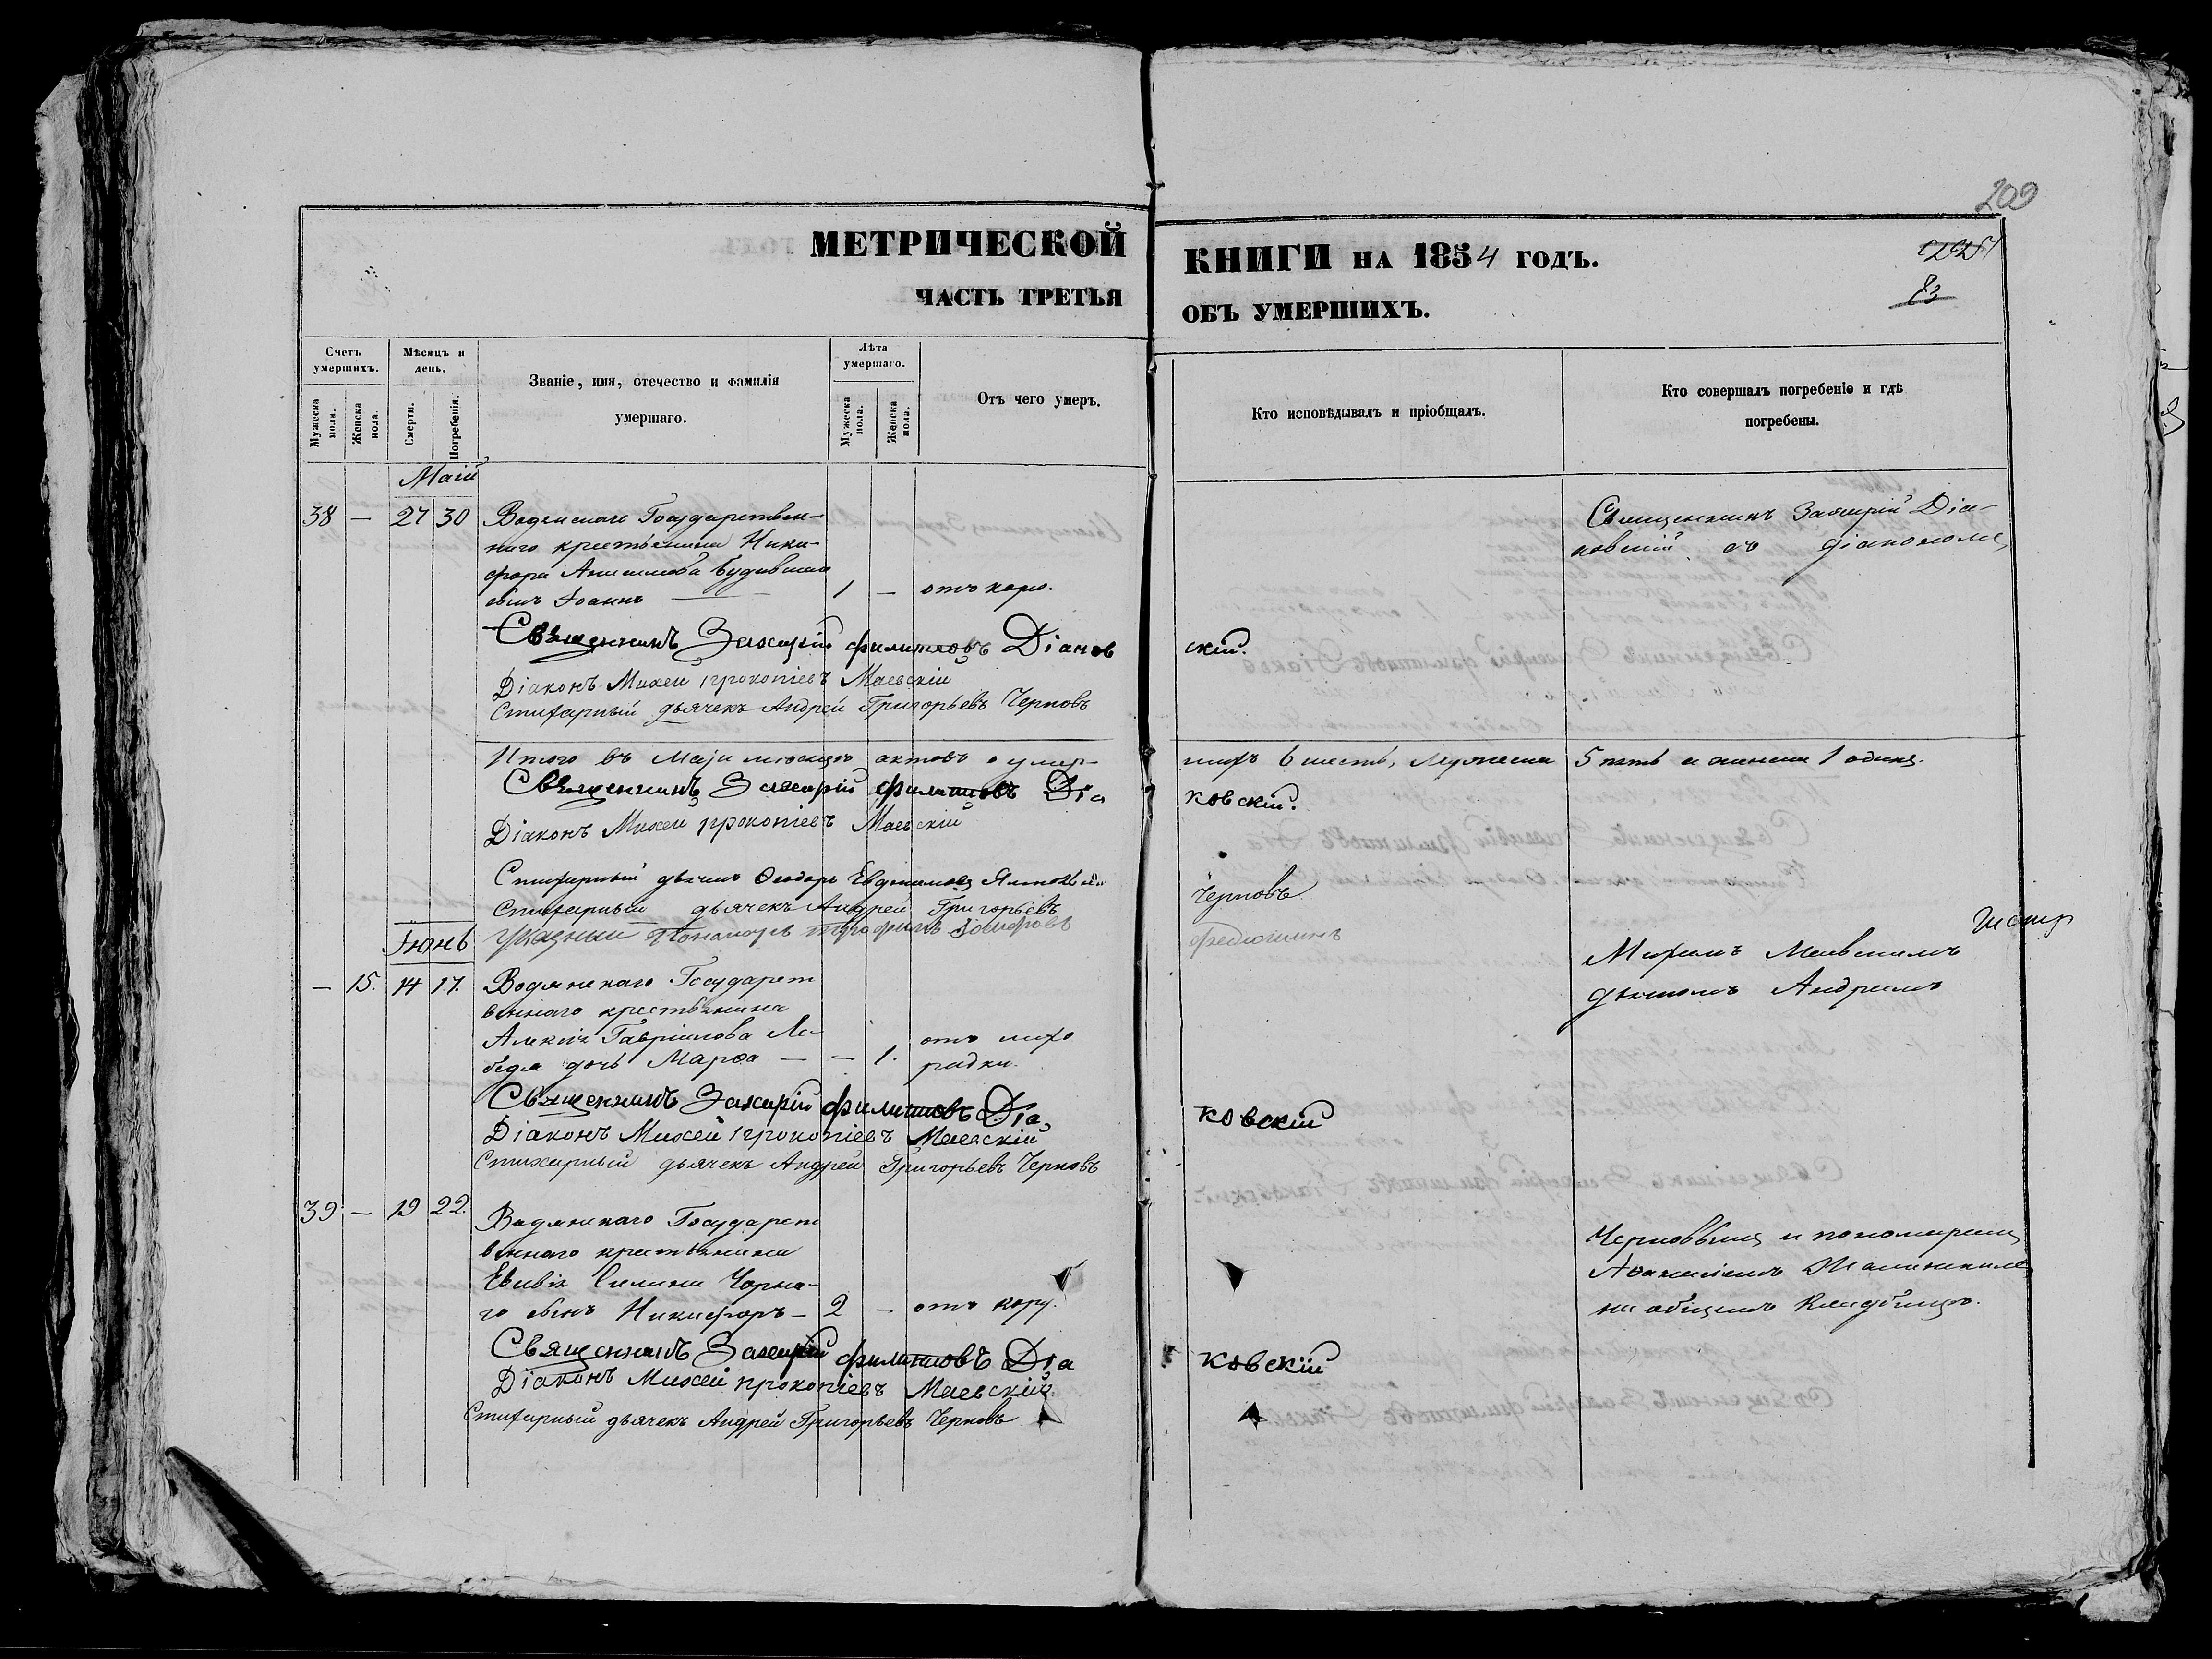 209
МЕТРИЧЕСКОЙ КНИГИ НА 1854 ГОДЪ.
83
ЧАСТЬ ТРЕТЬЯ ОБЪ УМЕРШИХЪ.
Счетъ умершихъ.
Мужеска пола.
Женска пола.
Мѣсяцъ и день.
Смерти.
Погребенія.
Званіе, имя, отечество и фамилія умершаго.
Лѣта умершаго.
Мужеска пола.
Женска пола.
Отъ чего умеръ.
Кто исповѣдывалъ и пріобщалъ.
Кто совершалъ погребеніе и гдѣ погребены.
Маій
38 — 27 30 Водянскаго Государствен-
наго крестьянина Ники-
фора
сынъ Іоаннъ — 1 — отъ кору.
Священникъ Захарій Діа-
ковскій съ діакономъ
Священникъ Захарій Филиповъ Діаков
скій.
Діаконъ Михей Прокопіевъ Маевскій
Стихарный дьячекъ Андрей Григорьевъ Черновъ
Итого въ Маіи мѣсяцѣ актовъ о умер-
шихъ 6 шесть, мужеска 5 пять и женска 1 одинъ.
Священникъ Захарій Филиповъ Діа
ковскій.
Діаконъ Михей Прокопіевъ Маевскій
Стихарный дьячекъ Ѳеодоръ Евдокимовъ
Стихарный дьячекъ Андрей Григорьевъ
Черновъ
Указный Пономарь Трофимъ Іосифовъ
Федюшинъ
Іюнь
— 15. 14 17. Водянскаго Государст
веннаго крестьянина
Алексія Гавріилова Ле-
бедя дочь Марфа — — 1. отъ лихо
радки.
Михеемъ Маевскимъ
дьячкомъ Андреемъ
Священникъ Захарій Филиповъ Діа
ковскій
Діаконъ Михей Прокопіевъ Маевскій
Стихарный дьячекъ Андрей Григорьевъ Черновъ
39 — 19 22. Водянскаго Государст
веннаго крестьянина
Евсивія Чорна-
го сынъ Никифоръ — 2 — отъ кору.
Черновымъ и пономаремъ
на общемъ кладбищѣ.
Священникъ Захарій Филиповъ Діа
ковскій
Діаконъ Михей Прокопіевъ Маевскій
Стихарный дьячекъ Андрей Григорьевъ Черновъ